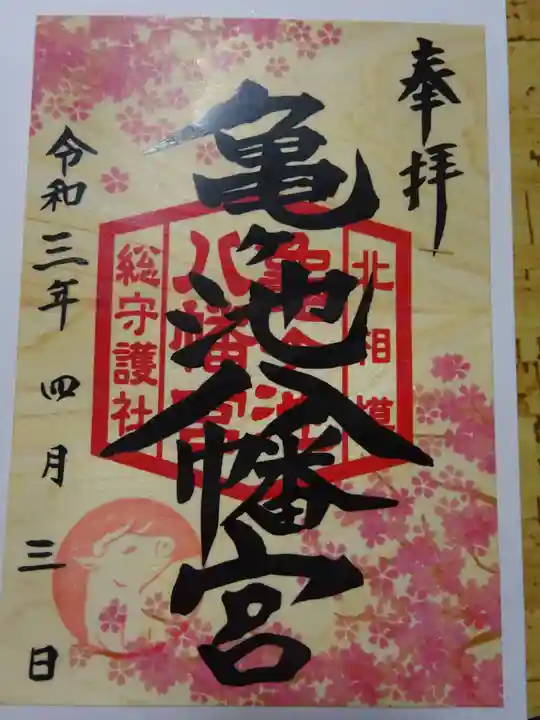 奉拝
亀ヶ池八幡宮
北相模
亀ヶ池
八幡宮
総守護社
令和三年四月三日